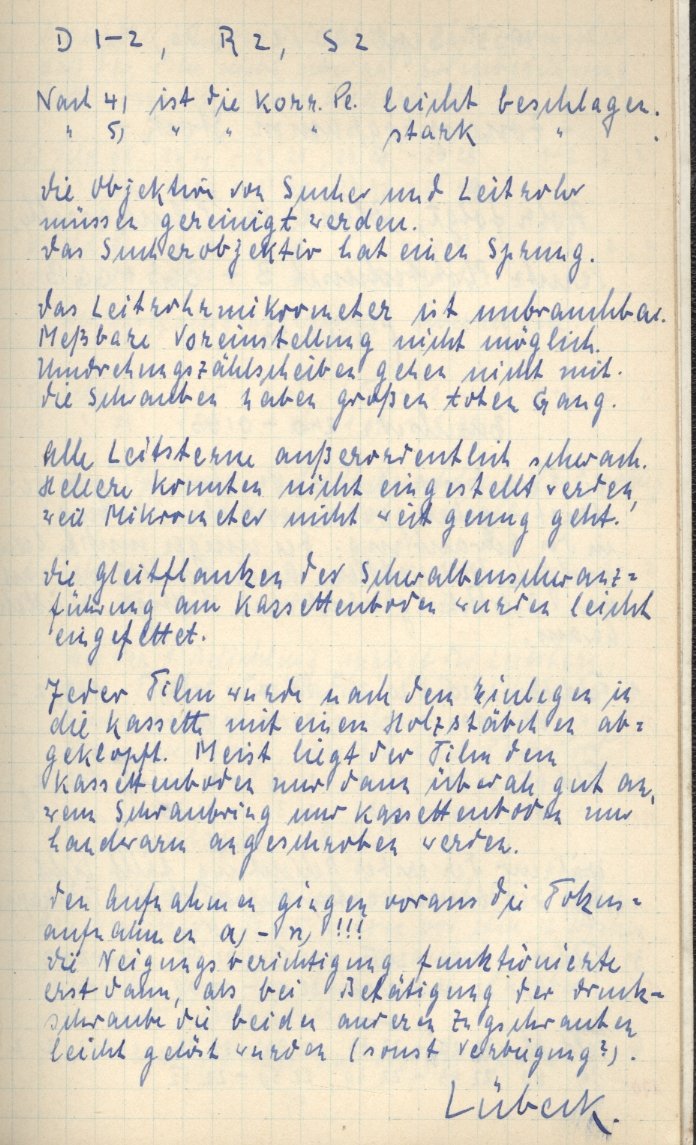 D 1-2, R 2, S 2
Nach 4) ist die Korr. Pl. leicht beschlagen.
" 5) " " " stark " .
die Objektive von Sucher und Leitrohr
müssen gereinigt werden.
das Sucherobjektiv hat einen Sprung.
das Leitrohrmikrometer ist unbrauchbar.
Meßbare Voreinstellung nicht möglich.
Umdrehungszählscheiben gehen nicht mit.
die Schrauben haben großen toten Gang.
Alle Leitsterne außerordentlich schwach.
Hellere konnten nicht eingestellt werden,
weil Mikrometer nicht weit genug geht.
die Gleitflanken der Schwalbenschwanz=
führung am Kassettenboden wurden leicht
eingefettet.
Jeder Film wurde nach dem Einlegen in
die Kassette mit einem Holzstäbchen ab=
geklopft. Meist liegt der Film dem
Kassettenboden nur dann überall gut an,
wenn Schraubring und Kassettenboden nur
handwarm angeschroben werden.
den Aufnahmen gingen voraus die Fokus=
aufnahmen a) - n) !!!
die Neigungsberichtigung funktionierte
erst dann, als bei Betätigung der Druck-
schraube die beiden anderen Zugschrauben
leicht gelöst wurden (sonst Verbiegung?).
Lübeck.